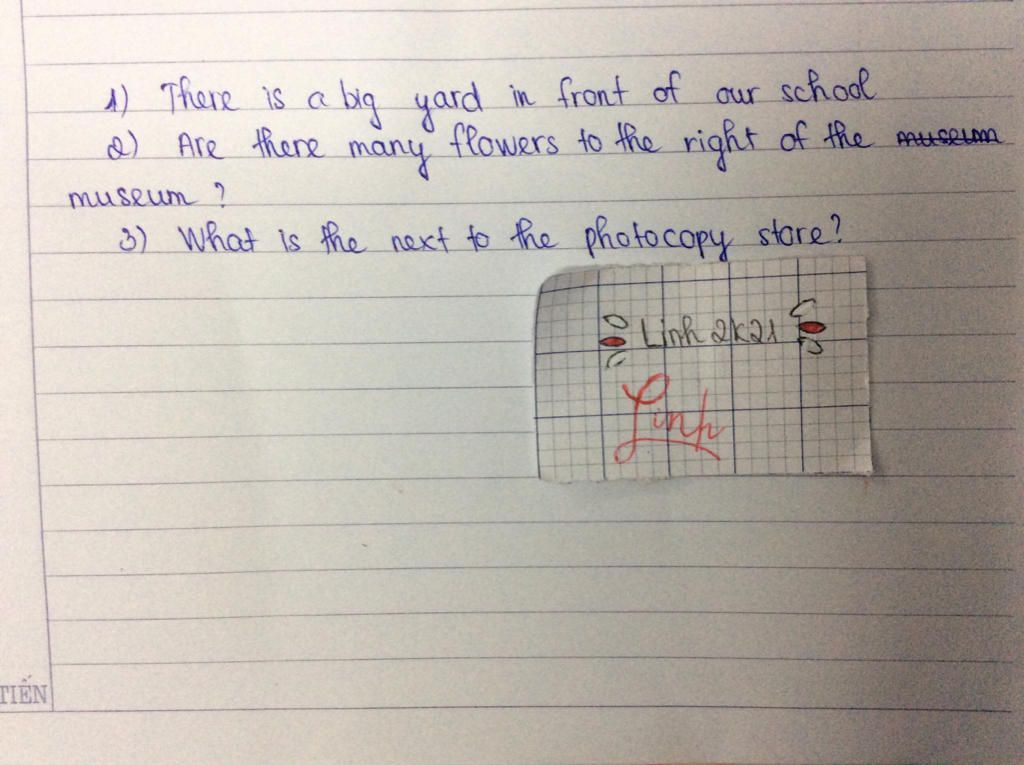 1) There is a big yard in front of our school
2) Are there many flowers to the right of the museum
museum ?
3) What is the next to the photocopy store?
Linh 2k21
Linh
TIẾN